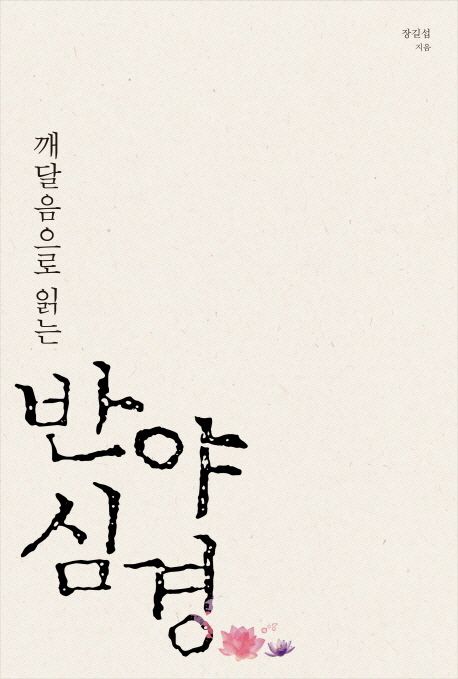 장길섭
지음
깨달음으로 읽는
반야
심경